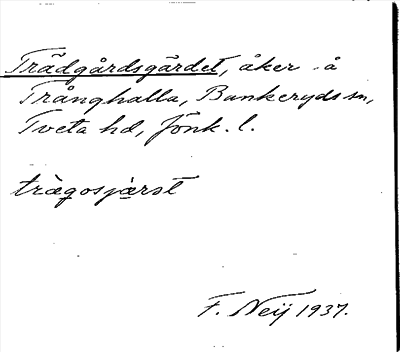 Trädgårdsgärdet, åker å
Trånghalla, Bankeryds sn,
Tveta hd, Jönk. l.
trägosjärst
F. Neij 1937.